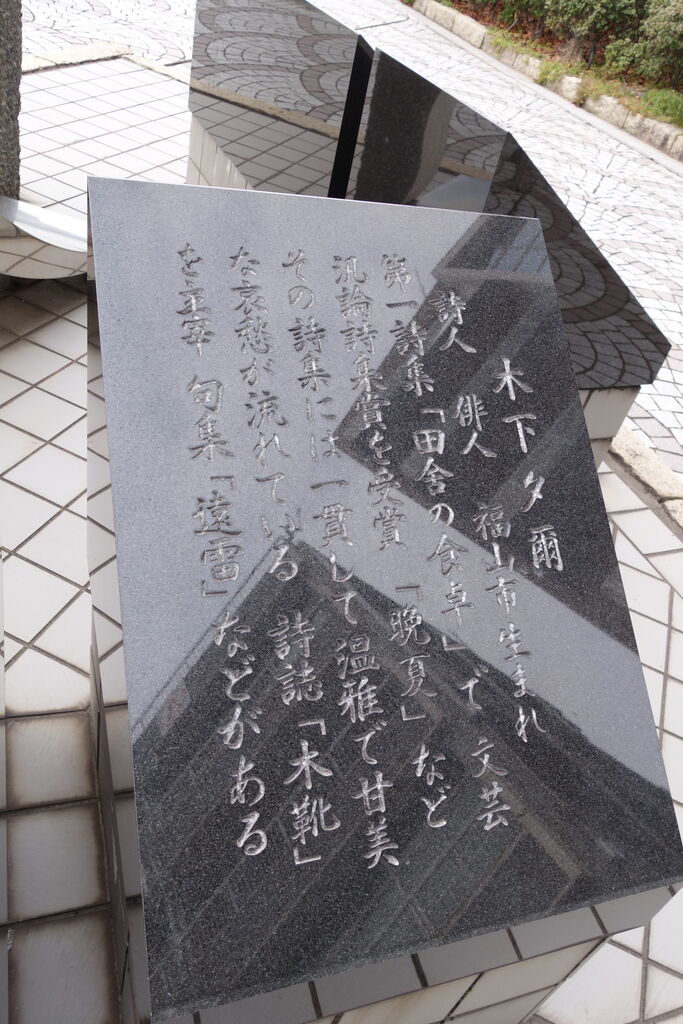 木下夕爾
詩人 俳人 福山市生まれ
第一詩集「田舎の食卓」で 文芸
汎論詩集賞を受賞 「晩夏」など
その詩集には一貫して温雅で甘美
な哀愁が流れている 詩誌「木靴」
を主宰 句集「遠雷」などがある